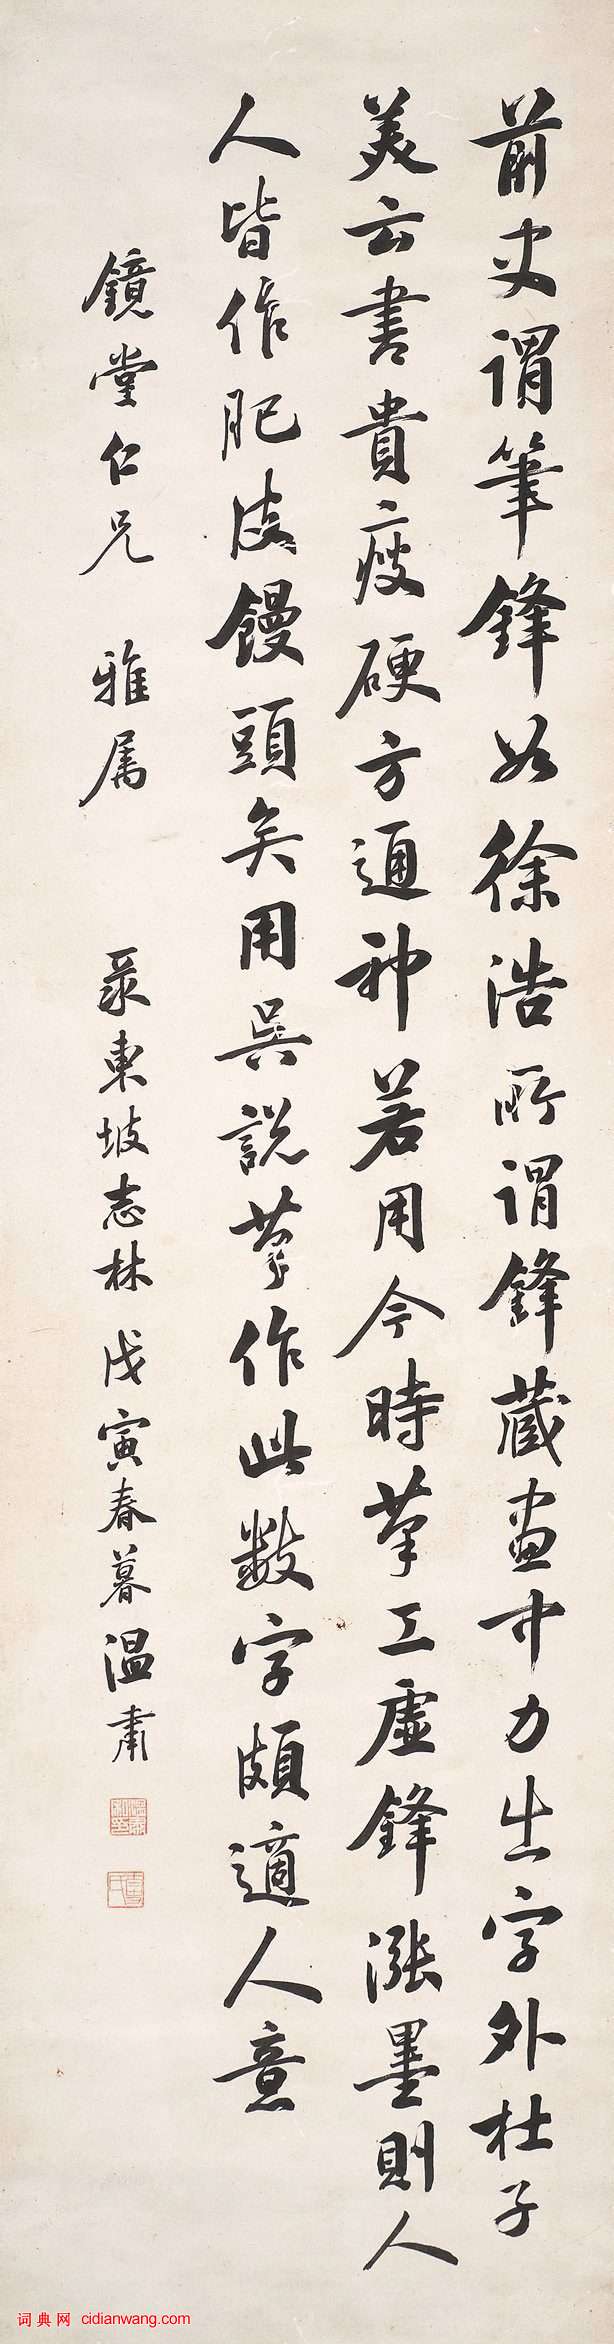 前史謂筆鋒如徐浩所謂鋒藏畫中力出字外杜子
美云書貴瘦硬方通神若用今時筆工虛鋒漲墨則人
人皆作肥皮饅頭矣用吳說筆作此數字頗適人意
鏡堂仁兄 雅属 录東坡志林 戊寅春暮 温肅
词典网 cidianwang.com